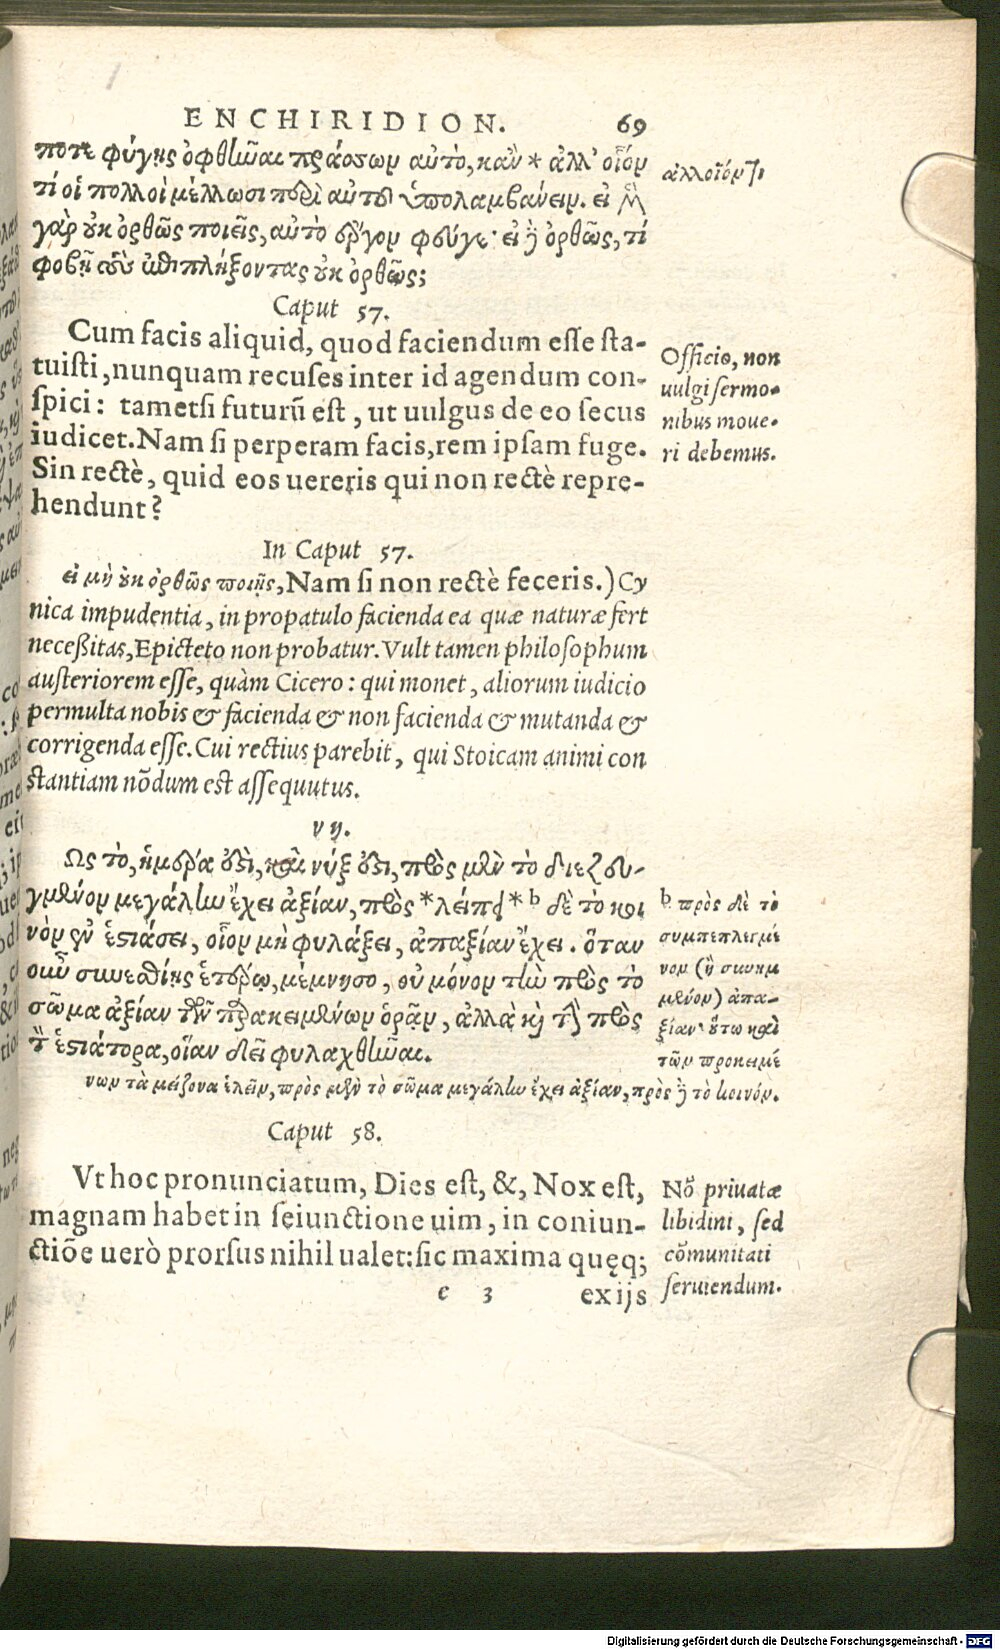 ENCHIRIDION. 69
ποτε φύγῃς ὀφθῆναι πράσσων αὐτὸ, κἂν * ἀλλ' οἷόν
τί οἱ πολλοὶ μέλλωσι περὶ αὐτοῦ ὑπολαμβάνειν. εἰ μὲν
γὰρ οὐκ ὀρθῶς ποιεῖς, αὐτὸ τὸ ἔργον φεῦγε· εἰ δὲ ὀρθῶς, τί
φοβῇ τοὺς ἐπιπλήξοντας οὐκ ὀρθῶς;
ἀλλοῖόν τι
Caput 57.
Cum facis aliquid, quod faciendum esse sta-
tuisti, nunquam recuses inter id agendum con-
spici: tametsi futurũ est, ut uulgus de eo secus
iudicet. Nam si perperam facis, rem ipsam fuge.
Sin rectè, quid eos uereris qui non rectè repre-
hendunt?
Officio, non
uulgi sermo-
nibus moue-
ri debemus.
In Caput 57.
εἰ μὴ οὐκ ὀρθῶς ποιῇς, Nam si non rectè feceris.) Cy
nica impudentia, in propatulo facienda ea quæ naturæ fert
neceßitas, Epicteto non probatur. Vult tamen philosophum
austeriorem esse, quàm Cicero: qui monet, aliorum iudicio
permulta nobis & facienda & non facienda & mutanda &
corrigenda esse. Cui rectius parebit, qui Stoicam animi con
stantiam nõdum est assequutus.
νη.
Ὡς τὸ, ἡμέρα ἐστὶ, καὶ νύξ ἐστι, πρὸς μὲν τὸ διεζευ-
γμένον μεγάλην ἔχει ἀξίαν, πρὸς *λείπει* b δὲ τὸ κοι
νὸν ἐν ἑστιάσει, οἷον μὴ φυλάξει, ἀπαξίαν ἔχει. ὅταν
οὖν συνεσθίῃς ἑτέρῳ, μέμνησο, οὐ μόνον τὴν πρὸς τὸ
σῶμα ἀξίαν τῶν παρακειμένων ὁρᾷν, ἀλλὰ καὶ τὴν πρὸς
τὸν ἑστιάτορα, οἵαν δεῖ φυλαχθῆναι.
b πρὸς δὲ τὸ
συμπεπλεγμέ
νον (ἢ συνημ
μένον) ἀπα-
ξίαν· οὕτω καὶ
τῶν προκειμέ
νων τὰ μείζονα ἑλεῖν, πρὸς μὲν τὸ σῶμα μεγάλην ἔχει ἀξίαν, πρὸς δὲ τὸ κοινόν.
Caput 58.
Vt hoc pronunciatum, Dies est, &, Nox est,
magnam habet in seiunctione uim, in coniun-
ctiõe uerò prorsus nihil ualet: sic maxima quęq;
Nõ priuatæ
libidini, sed
cõmunitati
seruiendum.
e 3 exijs
Digitalisierung gefördert durch die Deutsche Forschungsgemeinschaft - DFG